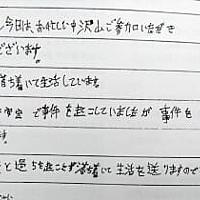 今日は、お忙しい中沢山ご参加いただき
ございます。
落ち着いて生活しています。
で事件を起こしていましたが 事件を
す。
と過ちを起こさず落ち着いて生活を送りますので